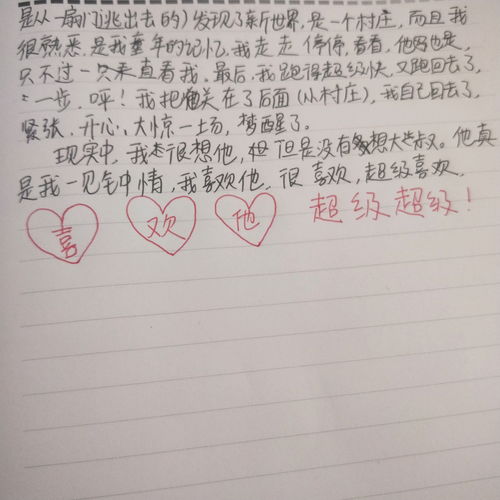 是从一扇门逃出去的)发现了新世界,是一个村庄,而且我
很熟悉,是我童年的记忆,我走走停停,看看,他也是,
只不过一只来直看我,最后,我跑得超级快,又跑回去了,
一步,呼!我把他关在了后面(从村庄),我自己回去了,
紧张、开心、大惊一场,梦醒了。
现实中,我很想他,但是没有想大叔。他真
是我一见钟情,我喜欢他,很喜欢,超级喜欢,
喜 欢 他 超级超级!